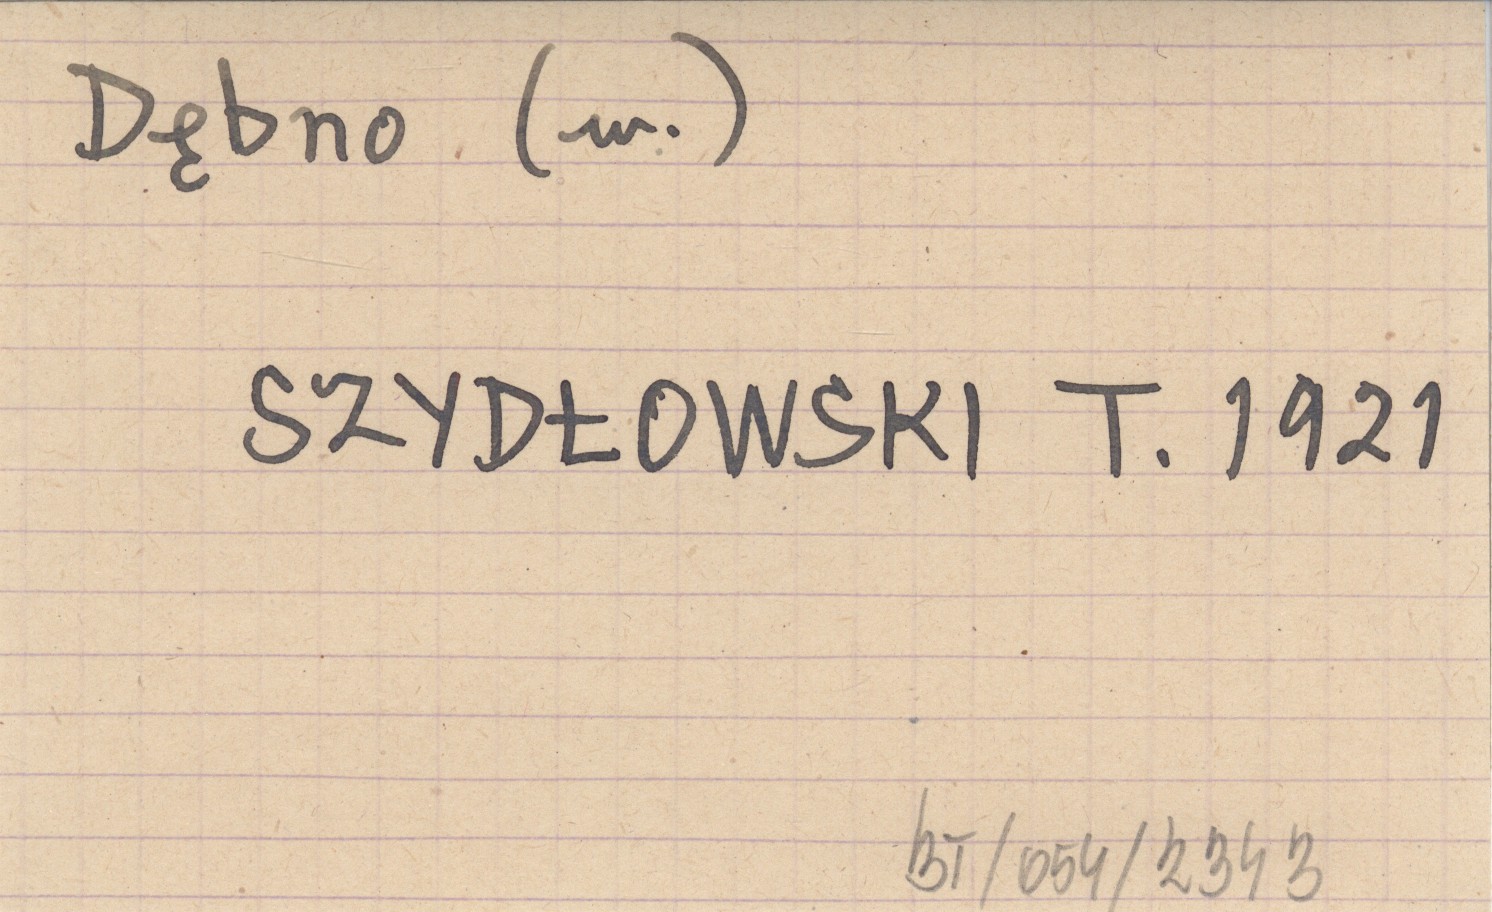 Dębno (w.)
SZYDŁOWSKI T. 1921
BT/054/2343